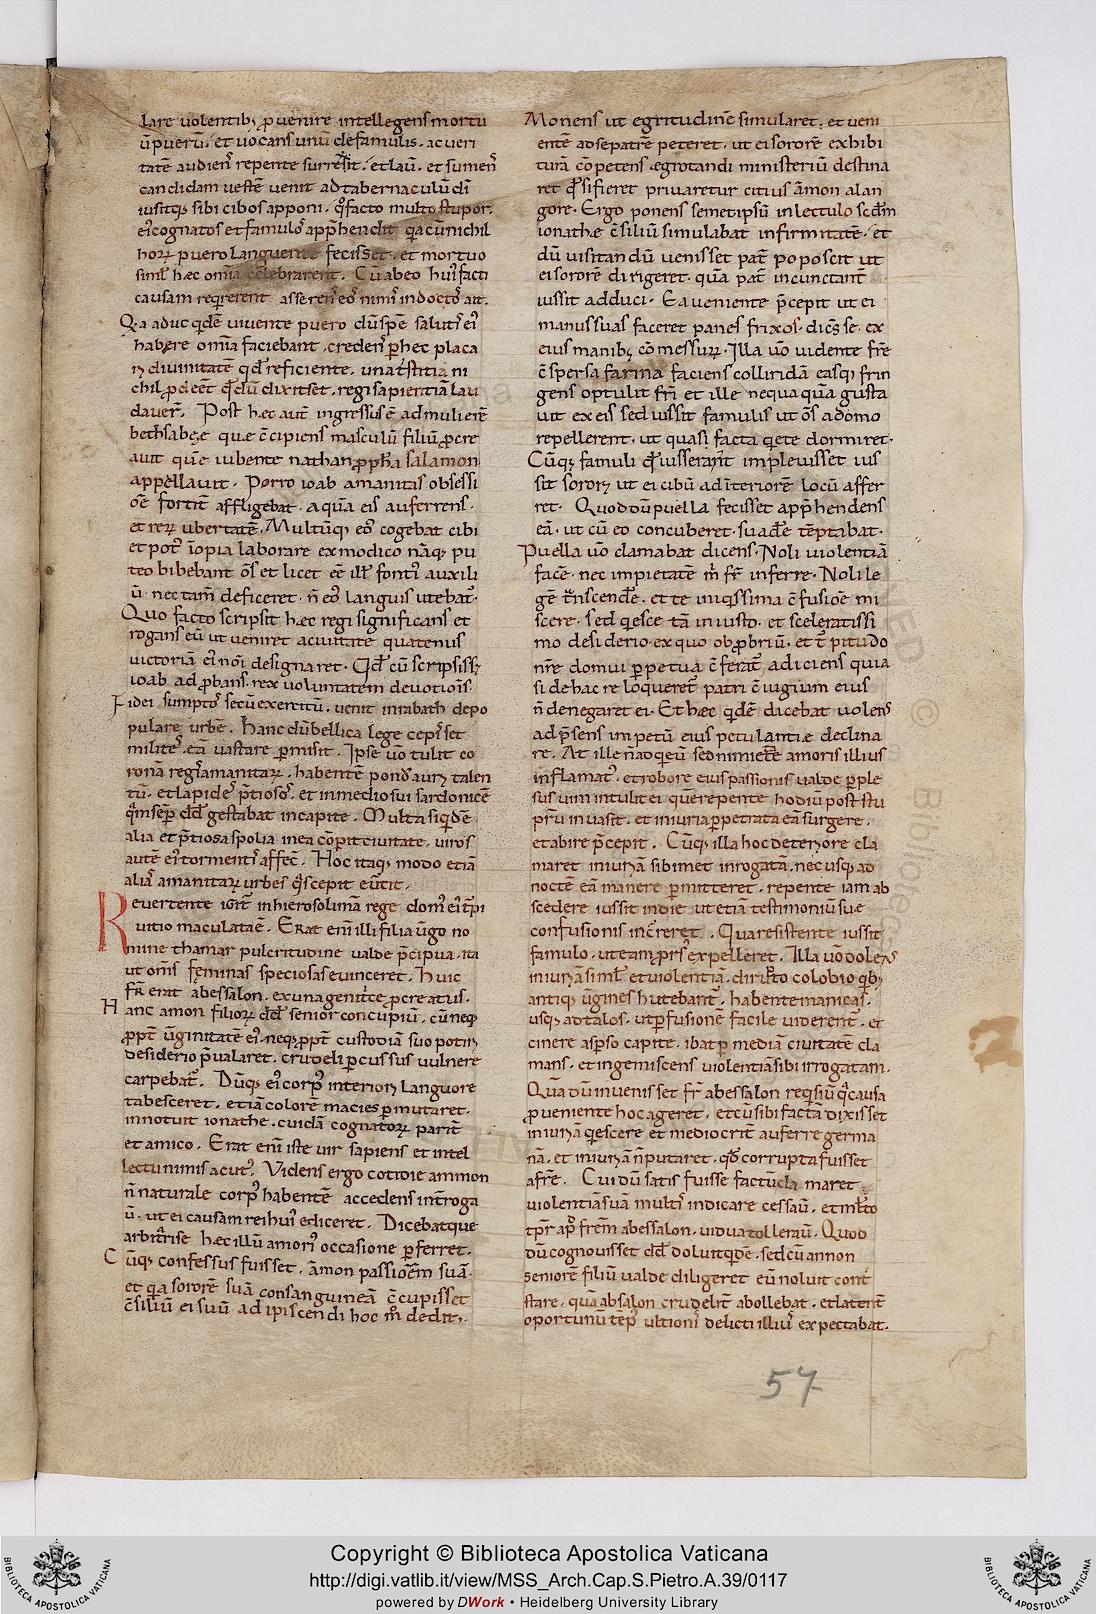 lare uolentib; ꝑuenire intellegens mortu
ũ puerũ. et uocans unũ de famulis. ac ueri
tatẽ audiens repente surrexit. et lauit. et sumens
candidam uestẽ uenit ad tabernaculũ dĩ
iussitq; sibi cibos apponi. q̊ facto multo stupor
ei cognatos et famulos app̃hendit q̃a cũ nichil
horꝝ puero languente fecisset. et mortuo
siml̃ hęc om̃ia celebrarent. Cũ ab eo hui facti
causam reqrerent asserens eos nimis indoctos ait.
Q̃a aduc qdẽ uiuente puero dũ spẽ saluti ei
habere om̃ia faciebant. credens ꝑ hec placa
ri diuinitatẽ qd̃ reficiente. una tristitia ni
chil ꝓdeẽt qd̃ dũ dixisset. regi sapientiã lau
dauer̃. Post hæc aut̃ ingressus ẽ ad mulierẽ
bethsabęę quæ c̃cipiens masculũ filiũ ꝓcre
auit quẽ iubente nathan ꝓph̃a salamon
appellauit. Porro ioab amanitas obsessi
oẽ fortit̃ affligebat. aquã eis auferrens.
et rerꝝ ubertatẽ. Multũq; eos cogebat cibi
et pot̃ iopia laborare ex modico nãq; pu
teo bibebant om̃s et licet eẽ ill fonti auxili
ũ. nec tam̃ deficeret. ñ eo languis utebat.
Quo facto scripsit hæc regi significans et
rogans eũ ut ueniret ac uiuitate quatenus
uictoriã ei noi designaret. Qd̃ cũ scripsiss;
ioab ad ꝓbans rex uoluntatem deuotiois
Fidei sumpto secũ exercitũ. uenit in rabath depo
pulare urbẽ. Hanc dũ bellica lege cepisset
milites eã uastare ꝑmisit. Ipse uo tulit co
ronã regis amanitarꝝ. habentẽ pondus auri talen
tũ. et lapides p̃tiosos. et in medio sui sardonicẽ
q̃m semp̃ dd̃ gestabat in capite. Multa siqdẽ
alia et p̃tiosa spolia in ea cõperit ciuitate. uiros
autẽ ei tormentis affec̃. Hoc itaq; modo etiã
alias amanitarꝝ urbes q̃s cepit euertit.
Reuertente igit̃ in hierosolimã rege dom ei t̃pi
uitio maculatæ. Erat em̃ illi filia u̇go no
mine thamar pulcritudine ualde p̃cipua. ita
ut om̃s feminas speciosas euinceret. Huic
fr̃ erat abessalon. ex una genitrice ꝓcreatus.
Hanc amon filiorꝝ dd̃ senior concupiuit. cũ neq;
ꝓpt̃ u̇ginitatẽ ei. neq; ꝓpt̃ custodiã suo potiri
desiderio p̃ualaret. crudeli ꝑcussus uulnere
carpebat. Dũq; ei corpus interiori languore
tabesceret. etiã colorẽ macies ꝑmutaret.
innotuit ionathe. cuidã cognatorꝝ parit̃
et amico. Erat em̃ iste uir sapiens et intel
lectu nimis acutus. Videns ergo cotidie ammon
ñ naturale corpus habentẽ accedens int̃roga
ũ. ut ei causam rei hui ediceret. Dicebatque
arbitrise hæc illũ amoris occasione ꝑferret.
Cũq; confessus fuisset. ãmon passiõem suã.
et q̃a sororẽ suã consanguineã c̃cupisset
c̃siliũ ei suũ adipiscendi hoc m̊ dedit.
Monens ut egritudinẽ simularet. et ueni
entẽ ad se patrẽ peteret. ut ei sororẽ exhibi
turã cõpetens egrotandi ministeriũ destina
ret qd̃ si fieret priuaretur citius ãmon a lan
gore. Ergo ponens semetipsũ in lectulo scd̃m
ionathæ c̃siliũ simulabat infirmitatẽ. et
dũ uisitandũ uenisset pat̃ poposcit ut
ei sororẽ dirigeret. quã pat̃ incunctant̃
iussit adduci. Ea ueniente p̃cepit ut ei
manus suas faceret panes frixos. dicẽs se ex
eius manib; cõmessurꝝ. Illa uo uidente fr̃e
c̃spersa farina faciens colliridã easq; frin
gens optulit fr̃i et ille nequaquã gusta
uit ex eis sed iussit famulis ut om̃s a domo
repellerent. ut quasi facta qete dormiret.
Cũq; famuli qd̃ iusserant implevisset ius
sit sorori ut ei cibũ ad interiorẽ locũ affer
ret. Quod dũ puella fecisset app̃hendens
eã. ut cũ eo concuberet. suadẽ tẽptabat.
Puella uo clamabat dicens. Noli uiolentiã
facẽ. nec impietatẽ m̃ fr̃ inferre. Noli le
gẽ t̃nscendẽ. et te iniqssima c̃fusiõe mi
scere. sed qesce tã iniusto. et sceleratissi
mo desiderio. ex quo obꝓbriũ. et t̃pitudo
nr̃e domui ꝑpetua c̃ferat̃. adiciens quia
si de hac re loqueret̃ patri c̃iugium eius
ñ denegaret ei. Et hæc qdẽ dicebat uolens
ad p̃sens impetũ eius petulantiæ declina
re. At ille ñ adqeuit sed nimietate amoris illius
inflamat. et robore eius passionis ualde ꝑple
sus uim intulit ei quẽ repente hodiũ post stu
pr̃u inuasit. et iniuria ꝑpetrata eã surgere.
et abire p̃cepit. Cũq; illa hoc deteriore cla
maret iniuriã sibimet inrogatã. nec usq; ad
noctẽ eã manere ꝑmitteret. repente iam ab
scedere iussit in die ut etiã testimoniũ suę
confusionis increret. Qua resistente iussit
famulo. ut eam foris expelleret. Illa uo dolens
iniuriã siml̃ et uiolentiã. dirupto colobio qb;
antiq; u̇gines hutebant̃. habente manicas.
usq; ad talos. ut ꝑ fusionẽ facile uiderent̃. et
cinere asp̃so capite. ibat ꝑ mediã ciuitatẽ cla
mans. et ingemiscens uiolentiã sibi irrogatam.
Quã dũ inuenisset fr̃ abessalon reqsiuit q̃ causa
ꝓueniente hoc ageret. et cũ sibi factã dixisset
iniuriã qescere et mediocrit̃ aufferre germa
nã. et iniuriã ñ putaret. qd̃ corrupta fuisset
a fr̃e. Cui dũ satis fuisse factũ clamaret
uiolentiã suã multis indicare cessauit. et mlto
tp̃r ap̃ frẽm abessalon. uidua tollerauit. Quod
dũ cognouisset dd̃ doluit qdẽ. sed cũ amnon
seniorẽ filiũ ualde diligeret eũ noluit cont̃
stare. quã absalon crudelit̃ abollebat. et latent̃
oportunũ tẽps ultionis delicti illius expectabat.
57
Copyright © Biblioteca Apostolica Vaticana
http://digi.vatlib.it/view/MSS_Arch.Cap.S.Pietro.A.39/0117
powered by DWork • Heidelberg University Library
BIBLIOTECA APOSTOLICA VATICANA
BIBLIOTECA APOSTOLICA VATICANA